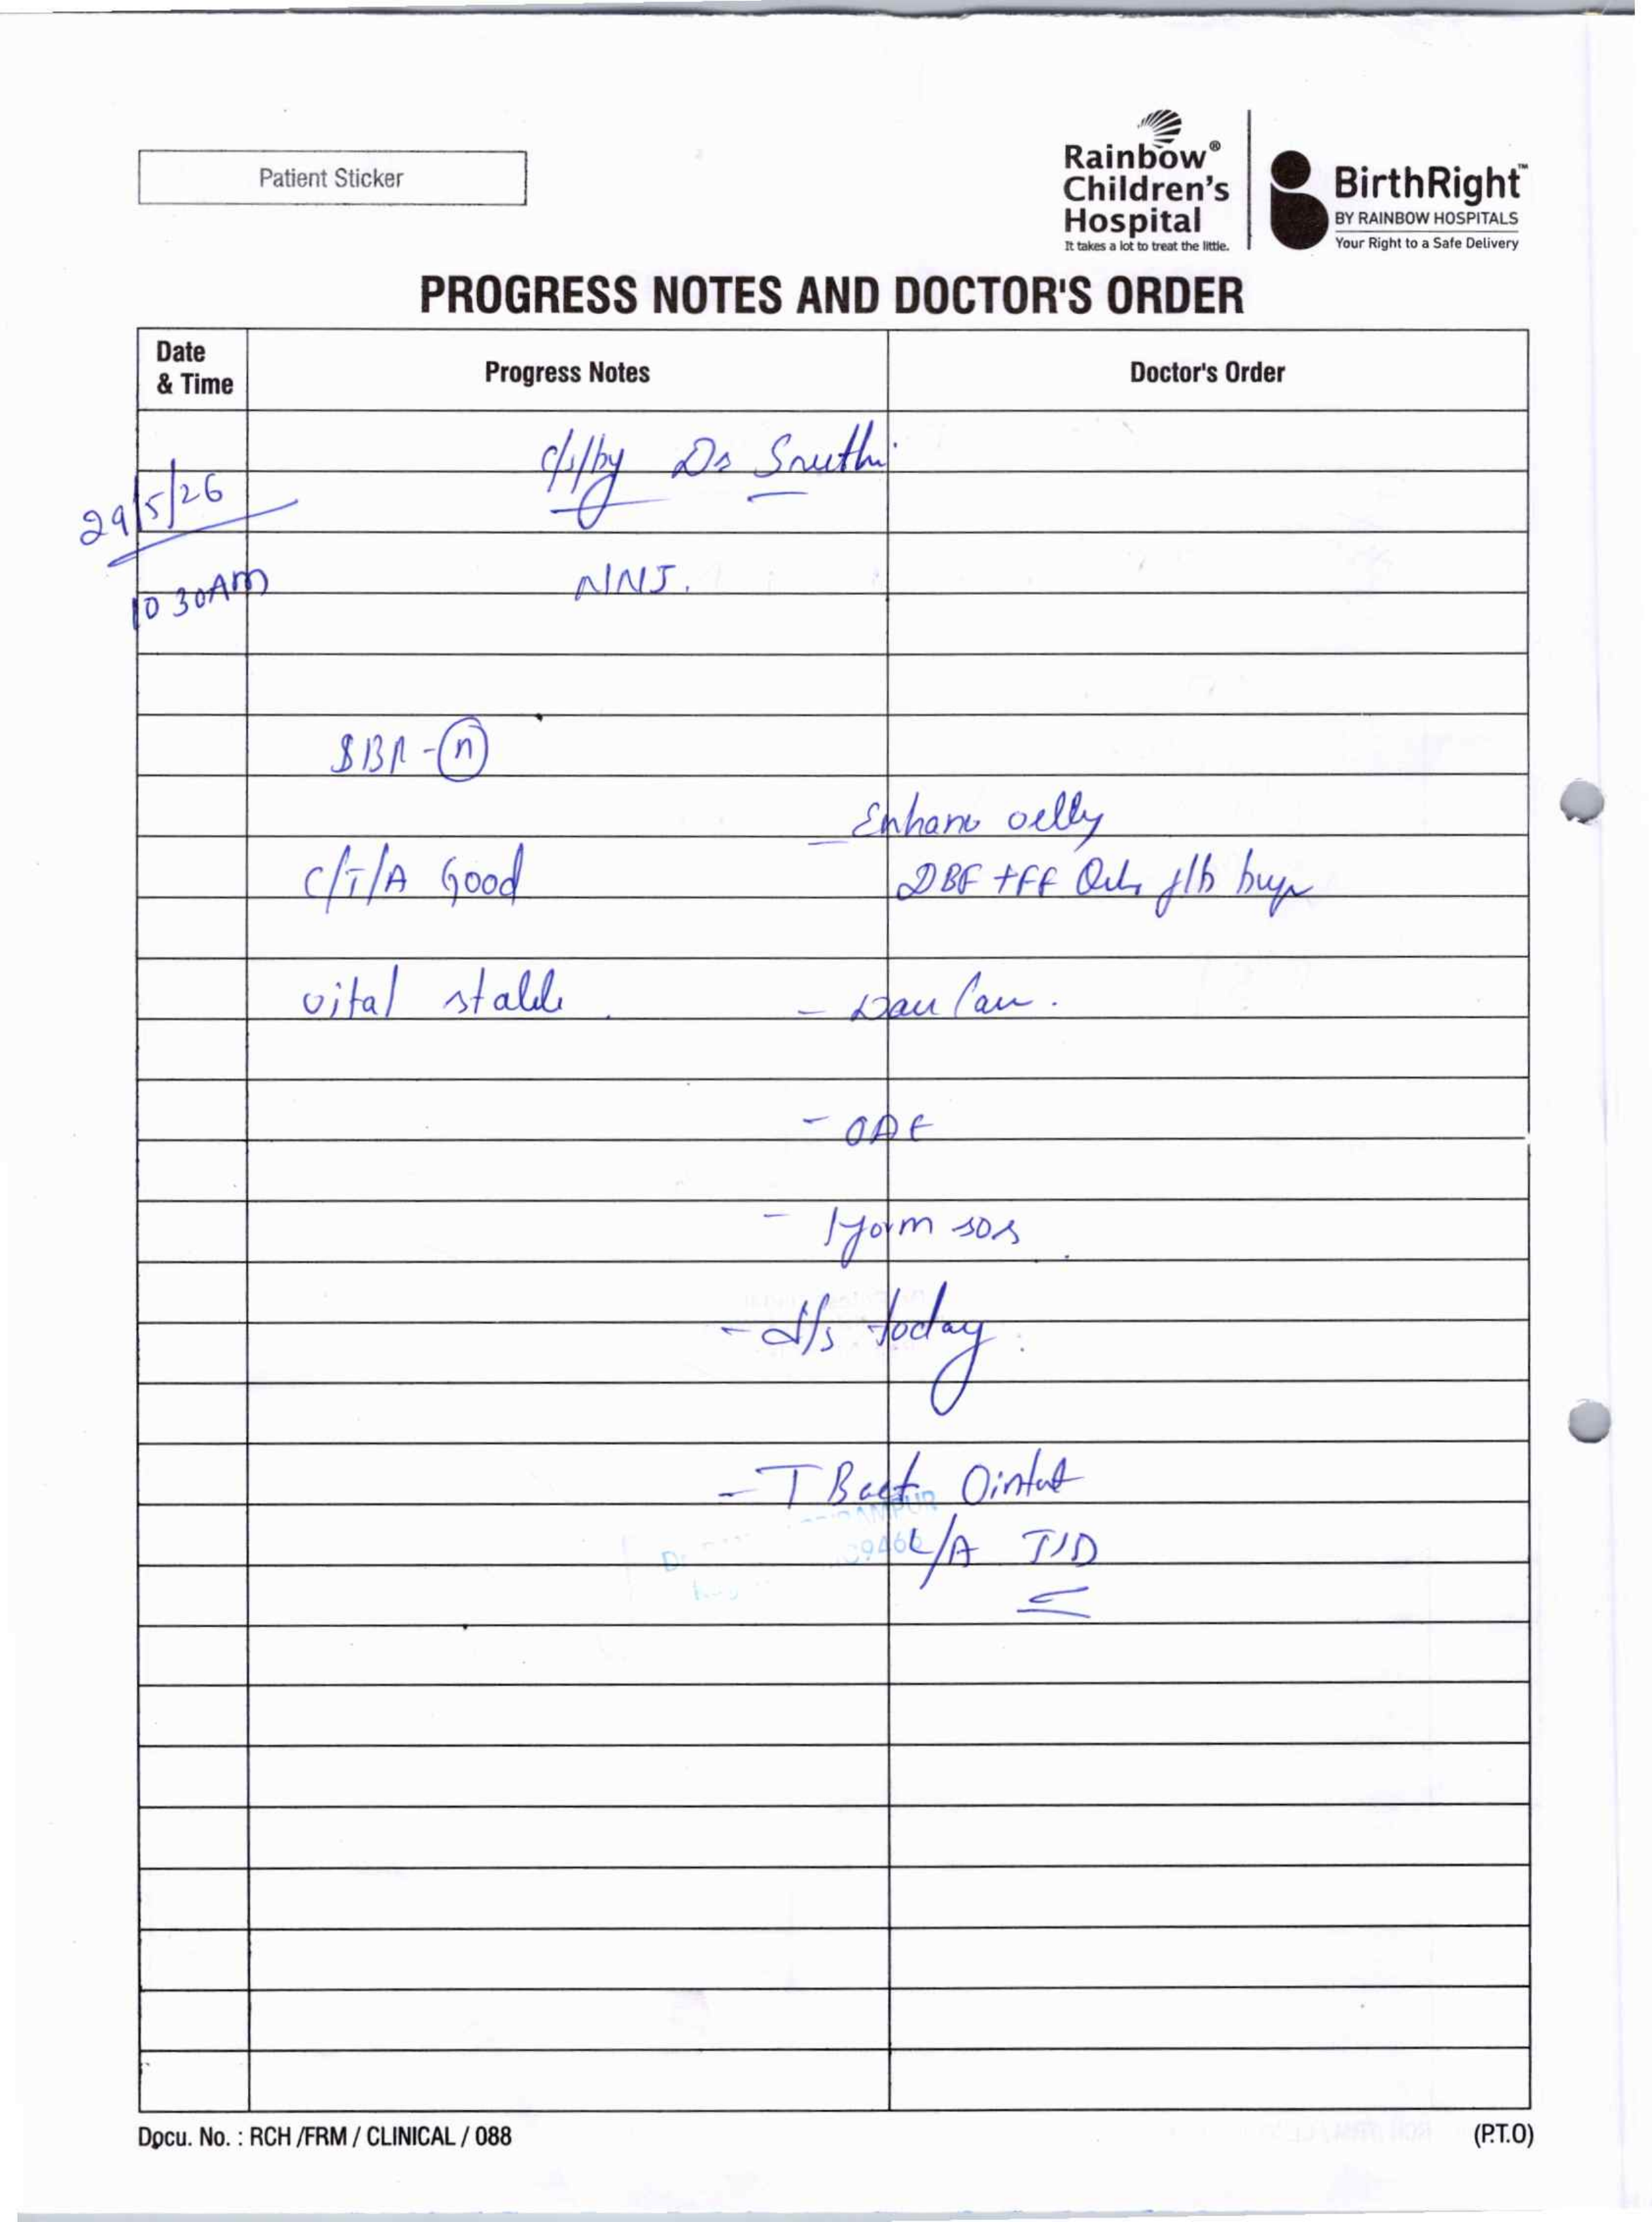 Patient Sticker
Rainbow®
Children's
Hospital
It takes a lot to treat the little.
BirthRight™
BY RAINBOW HOSPITALS
Your Right to a Safe Delivery
PROGRESS NOTES AND DOCTOR'S ORDER
Date
& Time
Progress Notes
Doctor's Order
Dr Sruthi
29/5/26
10 30AM
NNJ.
(n)
Enhance
C/T/A Good
DBF + FF
vital stable
- 
- 
- Inform sos
- d/s today
- T Bact Ointment
L/A TID
Docu. No. : RCH /FRM / CLINICAL / 088
(P.T.O)